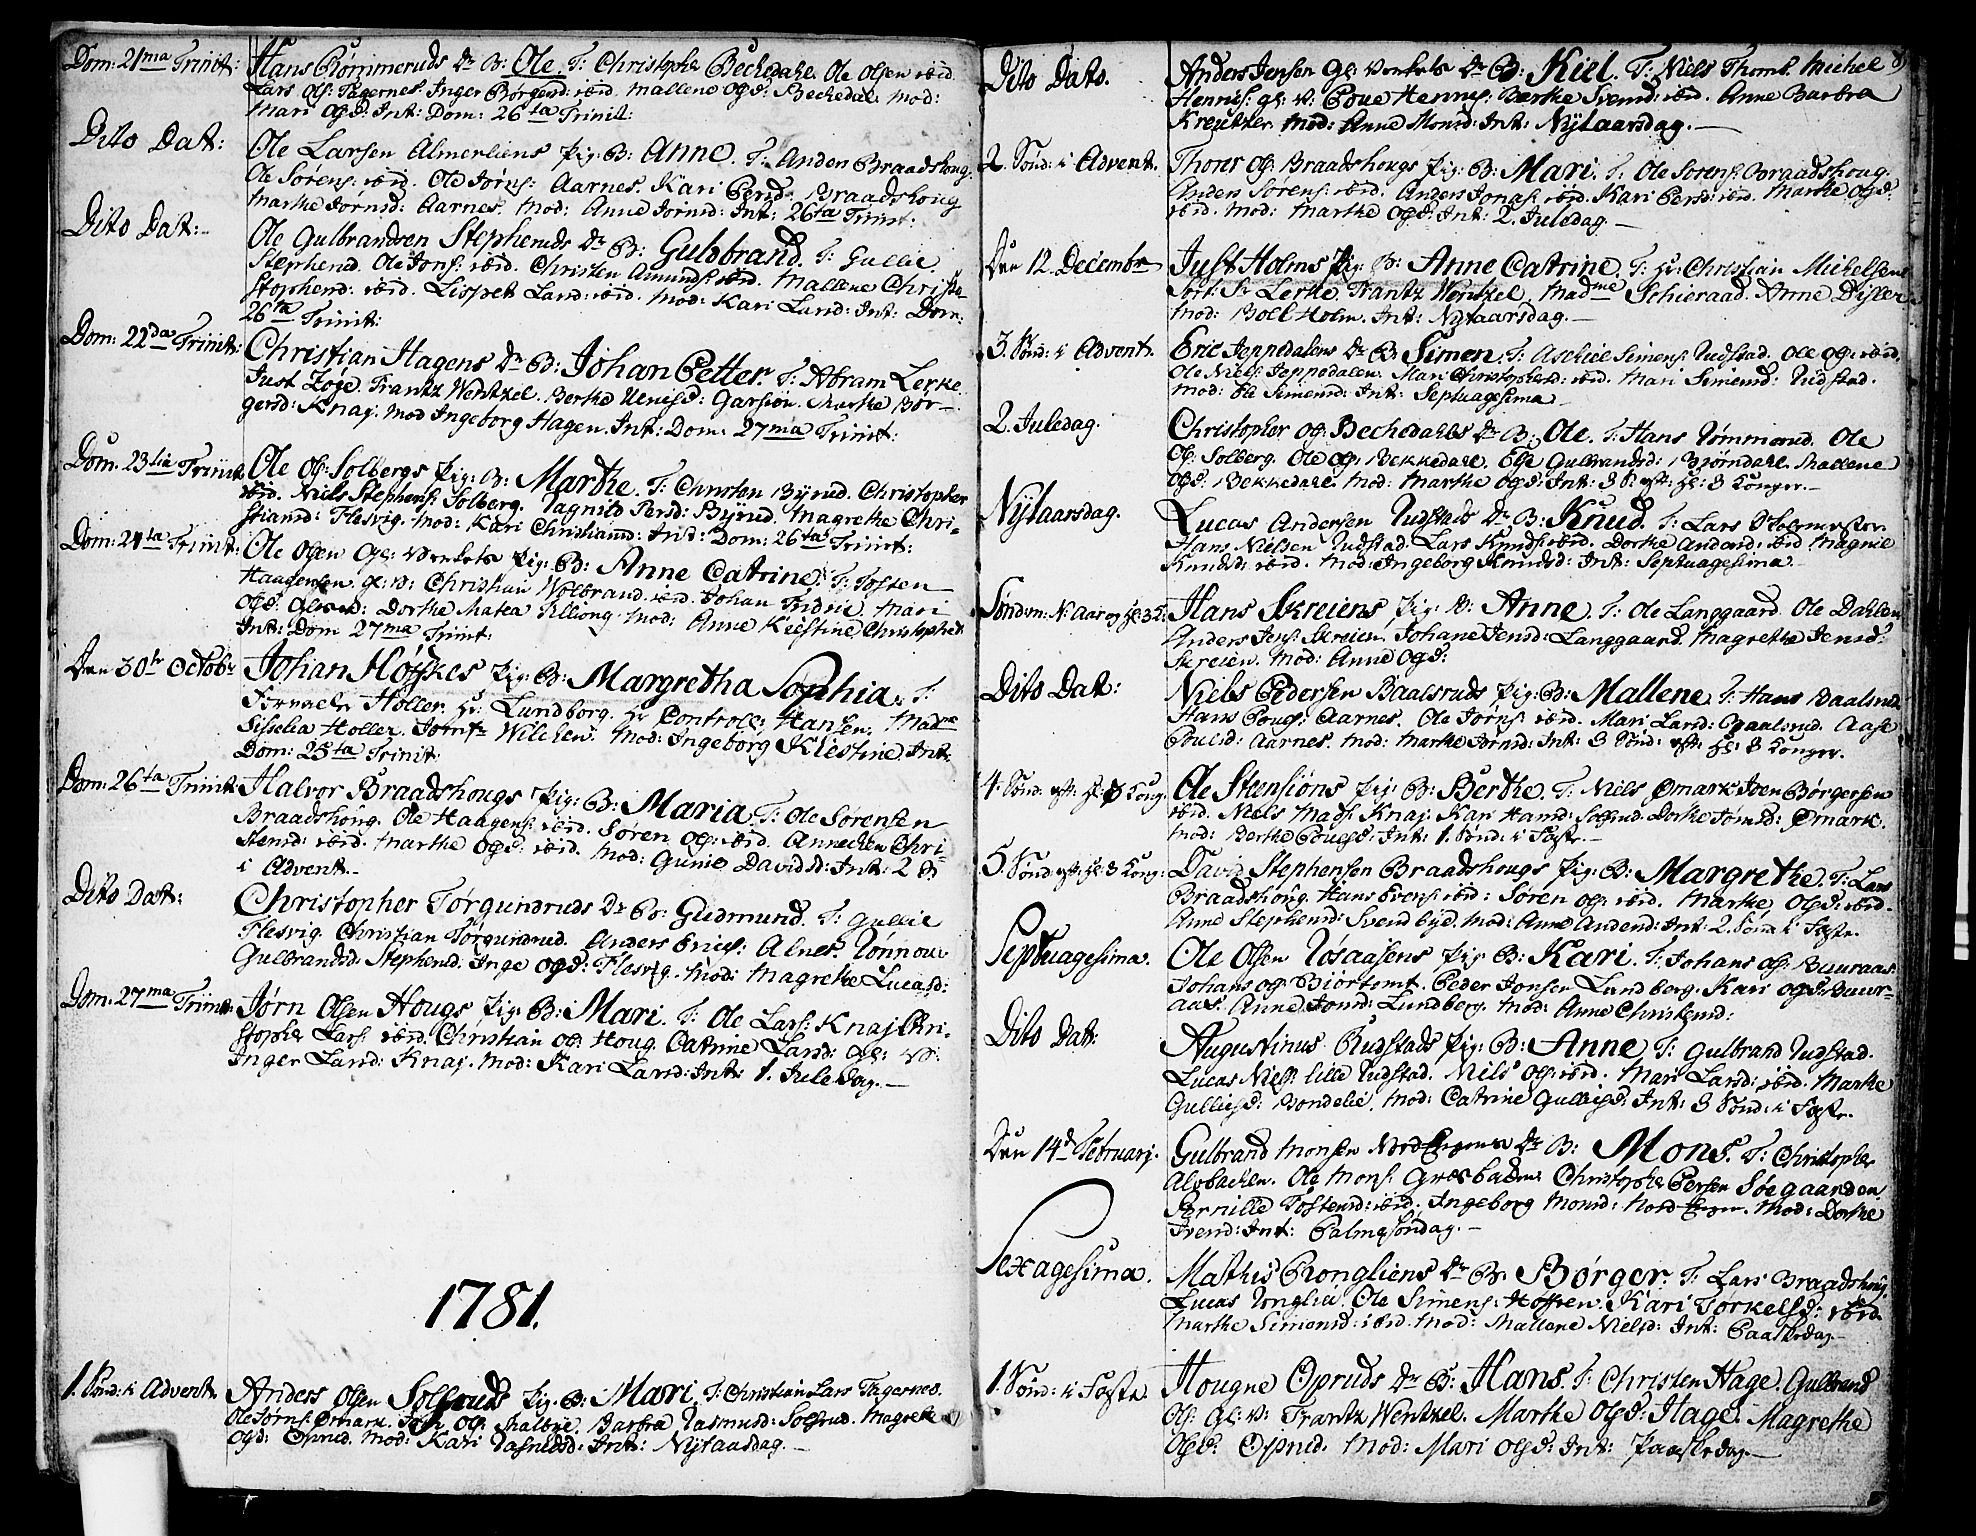 Dom: 21ma Trinit: Hans Rømmeruds Dr B: Ole. T: Christopher Beckedahl. Ole Olsen ibid.
Lars Ols: Fagernes. Inger Børgersd: ibid. Mallene Ogd: Beckedal. Mod:
Mari Ogd: Int: Dom: 26ta Trinit:
Dito Dat: Ole Larsen Almerliens Pig: B: Anne. T: Anders Braadshoug.
Ole Sørens: ibid. Ole Jørns: Aarnes. Kari Persd: Braadshoug
Marthe Jørnsd: Aarnes. Mod: Anne Jørnsd: Int: 26ta Trinit:
Dito Dat:- Ole Gulbrandsen Stepheruds Dr B: Gulbbrand. T: Gullic
Stepherud. Ole Jons: ibid. Christen Amunds: ibid. Mallene Christe
Stopherud: ibid. Lisbet Larsd: ibid. Mod: Kari Larsd: Int: Dom:
26ta Trinit:
Dom: 22da Trinit: Christian Hagens Dr B: Johan Petter. T: Abram Lerke
Just Føje. Frantz Wentzel. Berthe Garsion. Marthe Bør-
gersd: Knaj. Mod Ingeborg Hagen. Int: Dom: 27ma Trinit:
Dom: 23tia Trinit: Ole Ols: Solbergs Pig: B: Marthe. T: Christen Byrud. Christopher
ibid. Niels Stephens: Solberg. Ragnild Persd: Byrud. Magrethe Chri-
stiansd: Flesvig. Mod: Kari Christiansd: Int: Dom: 26ta Trinit:
Dom: 24ta Trinit: Ole Olsen Gl: Verkets Pig: B: Anne Catrine. T: Tosten
Haagensen gl: V: Christian Wolbrand ibid. Johan Fridric. Mari
Ogd: Dorthe Matea Mod: Anne Kiestine Christophersd:
Int: Dom 27ma Trinit:
Den 30te Octobr Johan Høyckes Pig: B: Margretha Sophia. T:
Holler. Hr Lundborg. Hr Controll: Hansen. Madme
Sisselia Holler. Jomfr Wilchen. Mod: Ingeborg Kiestine Int:
Dom: 25ta Trinit:
Dom: 26ta Trinit: Halvor Braadshougs Pig: B: Maria. T: Ole Sørensen
Braadshoug. Ole Haagens: ibid. Søren Ols: ibid. Annechen Chri-
stensd: ibid. Marthe Ogd: ibid. Mod: Gunie Davidsd: Int: 2 S
i Advent.-
Dito Dat: Christopher Tørgundruds Dr B: Gudmund. T: Gullic
Flesvig. Christian Tørgundrud. Anders Erics: Alnes. Rønnou
Gulbrandsd: Stepherud. Inge Ogd: Flesvig. Mod: Magrethe Lucasd:
Dom: 27ma Trinit: Jørn Olsen Hougs Pig: B: Mari. T: Ole Lars: Knaj Chri-
stopher Lars: ibid. Christian Ols: Houg. Catrine Larsd: Gl: V:
Inger Larsd: Knaj. Mod: Kari Larsd: Int: 1. Juledag.-
1781.
1. Sønd: i Advent. Anders Olsen Solbruds Pig: B: Mari. T: Christian Lars Fagernes.
Ole Jørns: Ømark. Ols: Barbra Rasmusd: Solfrud. Magrethe
Ogd: Oprud. Mod: Kari Int: Nytaarsdag.-
Dito Dato. Anders Jensen Gl: Verkets Dr B: Kiel. T: Niels Thoms. Michel
Henrics: gl: V: Poue Henrics: Berthe Svensd: ibid. Anne Barbra
Kreutzer. Mod: Anne Monsd: Int: Nytaarsdag.-
2. Sønd: i Advent. Thoer Ols: Braadshougs Pig: B: Mari. T: Ole Sørens: Braadshoug.
Anders Sørens: ibid. Anders Jonas: ibid. Kari Persd: ibid. Marthe Ogd:
ibid. Mod: Marthe Ogd: Int: 2. Juledag.-
Den 12. Decembr Just Holms Pig: B: Anne Catrine. T: Hr Christian Michelsen
Sr Lerke. Frantz Wentzel. Madme Schieraad. Anne Disler
Mod: Boel Holm. Int: Nytaarsdag.-
3. Sønd: i Advent. Eric Jeppedalens Dr B: Simen. T: Aschiel Simens: Rudstad. Ole Ols: ibid.
Ole Niels: Jeppedalen. Mari Christophersd: ibid. Mari Simensd: Rudstad.
Mod: Ele Simensd: Int: Septuagesima.-
2. Juledag. Christopher Ols: Bechedahls Dr B: Ole. T: Hans Rømmerud. Ole
Ols: Solberg. Ole Ols: Bekkedahl. Else Gulbrandsd: Bjørndahl. Mallene
Ogd: Bekkedahl. Mod: Marthe Ogd: Int: 3 S: eft: Hl: 3 Konger.-
Nytaarsdag. Lucas Andersen Rudstads Dr B: Knud. T: Lars
Hans Nielsen Rudstad. Lars Knuds: ibid. Dorthe Andersd: ibid Magnil
Knudsd: ibid. Mod: Ingeborg Knudsd: Int: Septuagesima.-
Søndm: N: Aar og Hl: 3 K: Hans Skreiens Pig: B: Anne. T: Ole Langgaard. Ole Dahlen
Anders Jens: Skreien. Johane Jensd: Langgaard. Magrethe Jensd:
Skreien. Mod: Anne Ogd:
Dito Dat: Niels Pedersen Baalsruds Pig: B: Mallene. T: Hans Baalsrud.
Hans Pouls: Aarnes. Ole Jørns: ibid. Mari Larsd: Baalsrud. Aase
Poulsd: Aarnes. Mod: Marthe Jørnsd: Int: 3 Sønd: eft: Hl: 3 Konger.
4. Sønd: eft: Hl: 3 Kong: Ole Stensiøns Pig: B: Berthe. T: Niels Ømark Iver Børgersen
ibid. Niels Mads: Knaj. Kari Hansd: Solfrud. Dorthe Jørnsd: Ømark.
Mod: Berthe Poulsd: Int: 1. Sønd: i Faste.-
5. Sønd: eft: Hl: 3 Kong: David Stephensen Braadshougs Pig: B: Margrethe. T: Lars
Braadshoug. Hans Evens: ibid: Søren Ols: ibid. Marthe Olsd: ibid.
Anne Stephensd: Svendbyd. Mod: Anne Andersd: Int: 2. Sønd: i Faste.
Septuagesima. Ole Olsen Røsaasens Pig: B: Kari. T: Johans Ols: Buuraas
Johans Ols: Biørtomt. Peder Jonsen Lundborg. Kari Ogd: Buur-
aas. Anne Jonsd: Lundberg. Mod: Anne Christensd:
Dito Dat: Augustinus Rudstads Pig: B: Anne T: Gulbrand Rudstad.
Lucas Niels: lille Rudstad. Nils Ols: ibid. Mari Larsd: ibid. Marthe
Gullicsd: Bondelie. Mod: Catrine Gullicsd: Int: 3 Sønd: i Faste.
Den 14d Februarj. Gulbrand Monsen Nord Dr B: Mons. T: Christopher
Alobachen. Ole Mons: Christopher Persen Søegaarden
Pernille Tostensd: ibid. Ingeborg Monsd: Nord Mod: Dorthe
Iversd: Int: Palmesøndag.-
Sexagesima. Mathis Rongliens Dr B: Børger. T: Lars Braadshoug.
Lucas Ronglie. Ole Simens: Kari Tørkelsd: ibid.
Marthe Simensd: ibid. Mod: Mallene Nielsd: Int: Paaskedag.-
1. Sønd: i Faste. Hougne Opruds Dr B: Hans. T: Christen Hage. Gulbrand
Ols: Gl: V: Frantz Wentzel. Marthe Olsd: Hage. Magrethe
Olsd: Oprud. Mod: Mari Olsd: Int: Paaskedag.-